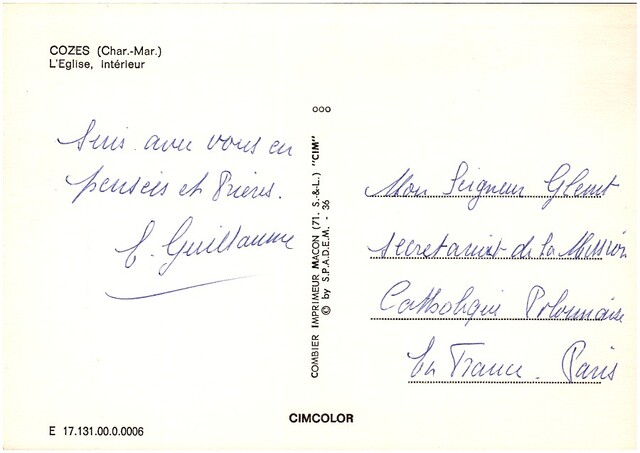 COZES (Char.-Mar.)
L'Eglise, intérieur
Suis avec vous en
pensées et Prières.
Guillaume
COMBIER IMPRIMEUR MACON (71. S.-&-L.) "CIM"
© by S.P.A.D.E.M. - 36
Mon Seigneur
Secretariat de la Mission
Catholique Polonaise
En France. Paris
CIMCOLOR
E 17.131.00.0.0006